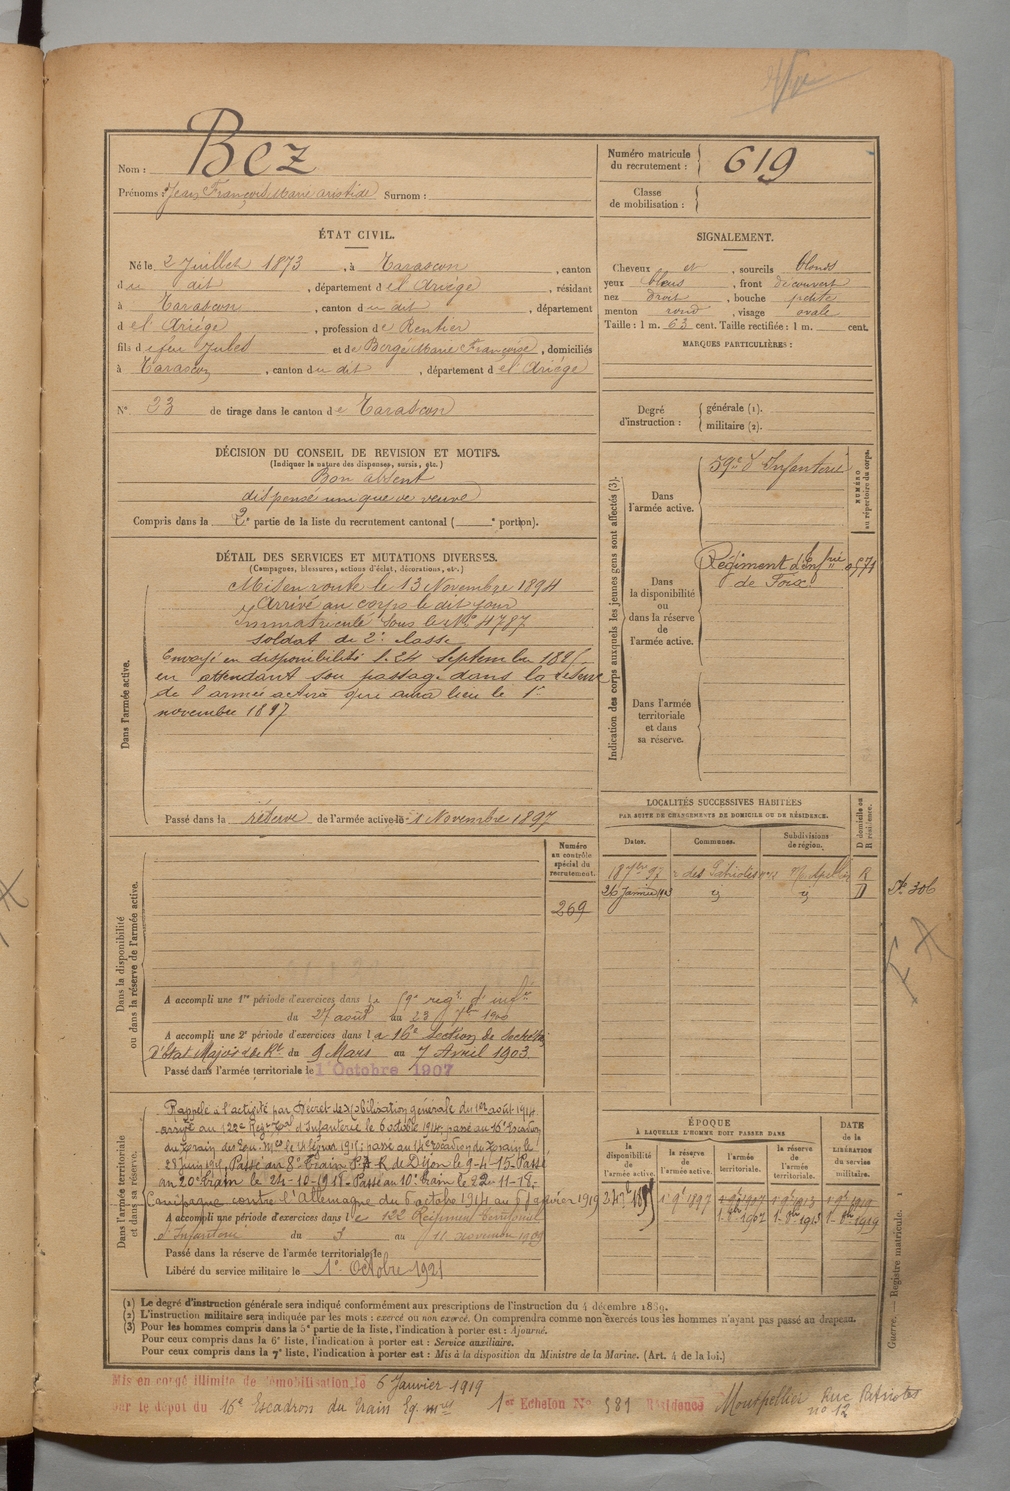 Nom : Bez
Prénoms : Jean François Marie Aristide Surnom :
Numéro matricule du recrutement : 619
Classe de mobilisation :
ÉTAT CIVIL.
Né le 2 Juillet 1873, à Tarascon, canton
du dit, département de l'Ariége, résidant
à Tarascon, canton du dit, département
de l'Ariége, profession de Rentier
fils de feu Jules et de Bergé Marie Françoise, domiciliés
à Tarascon, canton du dit, département de l'Ariége
N° 33 de tirage dans le canton de Tarascon
SIGNALEMENT.
Cheveux et, sourcils blonds
yeux bleus, front découvert
nez droit, bouche petite
menton rond, visage ovale
Taille : 1 m. 63 cent. Taille rectifiée : 1 m. cent.
MARQUES PARTICULIÈRES :
Degré d'instruction : générale (1).
militaire (2).
DÉCISION DU CONSEIL DE REVISION ET MOTIFS.
(Indiquer la nature des dispenses, sursis, etc.)
Bon absent
dispensé unique de veuve
Compris dans la 2e partie de la liste du recrutement cantonal ( e portion).
DÉTAIL DES SERVICES ET MUTATIONS DIVERSES.
(Campagnes, blessures, actions d'éclat, décorations, etc.)
Dans l'armée active.
Mis en route le 13 Novembre 1894
Arrivé au corps le dit jour
Immatriculé sous le No 4787
soldat de 2e classe
Envoyé en disponibilité le 24 Septembre 1895
en attendant son passage dans la réserve
de l'armée active qui aura lieu le 1er
novembre 1897
Passé dans la réserve de l'armée active le 1 Novembre 1897
Indication des corps auxquels les jeunes gens sont affectés (3).
NUMÉRO au répertoire du corps.
Dans l'armée active.
59e d'Infanterie
Dans la disponibilité ou dans la réserve de l'armée active.
Régiment d'Infrie
de Foix
Dans l'armée territoriale et dans sa réserve.
LOCALITÉS SUCCESSIVES HABITÉES
PAR SUITE DE CHANGEMENTS DE DOMICILE OU DE RÉSIDENCE.
Dates. Communes. Subdivisions de région. D domicile ou R résidence.
R
26 Janvier D
Dans la disponibilité ou dans la réserve de l'armée active.
Numéro au contrôle spécial du recrutement.
269
A accompli une 1re période d'exercices dans le 59e régt d'infie
du 27 août au 23 7bre 1900
A accompli une 2e période d'exercices dans la 16e Section de Secrétes
d'Etat Major & de Rt du 9 Mars au 7 Avril 1903
Passé dans l'armée territoriale le 1 Octobre 1907
Dans l'armée territoriale et dans sa réserve.
Rappelé à l'activité par Décret de Mobilisation générale du 1er août 1914
arrivé au 122e Régt Tal d'Infanterie le 6 octobre 1914, passé au 16e Escadron
du Train
28 juin 1915, Passé au 8e Train P.A.R. de Dijon le 9-4-15. Passé
au 20e train le 24-10-1918. Passé au 10e train le 22-11-18.
Campagne contre l'Allemagne du 6 octobre 1914 au 5 Janvier 1919
A accompli une période d'exercices dans le 122 Régiment Territorial
d'Infanterie du 3 au 11 novembre 1909
Passé dans la réserve de l'armée territoriale le
Libéré du service militaire le 1er Octobre 1921
ÉPOQUE
À LAQUELLE L'HOMME DOIT PASSER DANS
la disponibilité de l'armée active. la réserve de l'armée active. l'armée territoriale. la réserve de l'armée territoriale. DATE de la LIBÉRATION du service militaire.
(1) Le degré d'instruction générale sera indiqué conformément aux prescriptions de l'instruction du 4 décembre 1889.
(2) L'instruction militaire sera indiquée par les mots : exercé ou non exercé. On comprendra comme non exercés tous les hommes n'ayant pas passé au drapeau.
(3) Pour les hommes compris dans la 5e partie de la liste, l'indication à porter est : Ajourné.
Pour ceux compris dans la 6e liste, l'indication à porter est : Service auxiliaire.
Pour ceux compris dans la 7e liste, l'indication à porter est : Mis à la disposition du Ministre de la Marine. (Art. 4 de la loi.)
Guerre. — Registre matricule. 1
Mis en congé illimité de démobilisation le 6 Janvier 1919
par le dépôt du 16e Escadron du Train 1er Echelon No 581 Résidence Montpellier Rue Patriotes
no 12